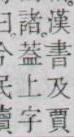 漢書及賈
諸葢上字
曰今民讀